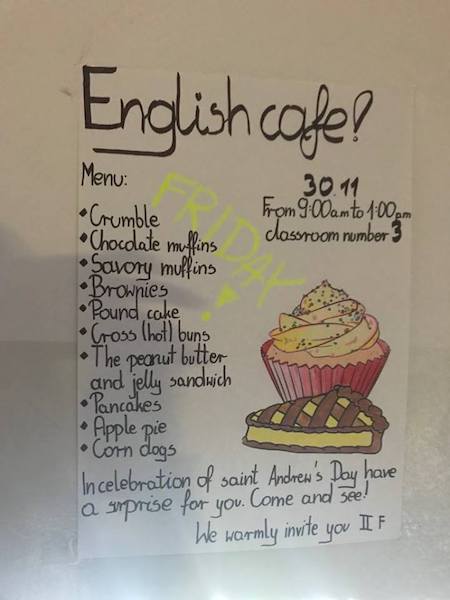 English cafe!
Menu:
FRIDAY!
30.11
From 9:00am to 1:00pm
classroom number 3
• Crumble
• Chocolate muffins
• Savory muffins
• Brownies
• Pound cake
• Cross (hot) buns
• The peanut butter
and jelly sandwich
• Pancakes
• Apple pie
• Corn dogs
In celebration of saint Andrew's Day have
a surprise for you. Come and see!
We warmly invite you II F